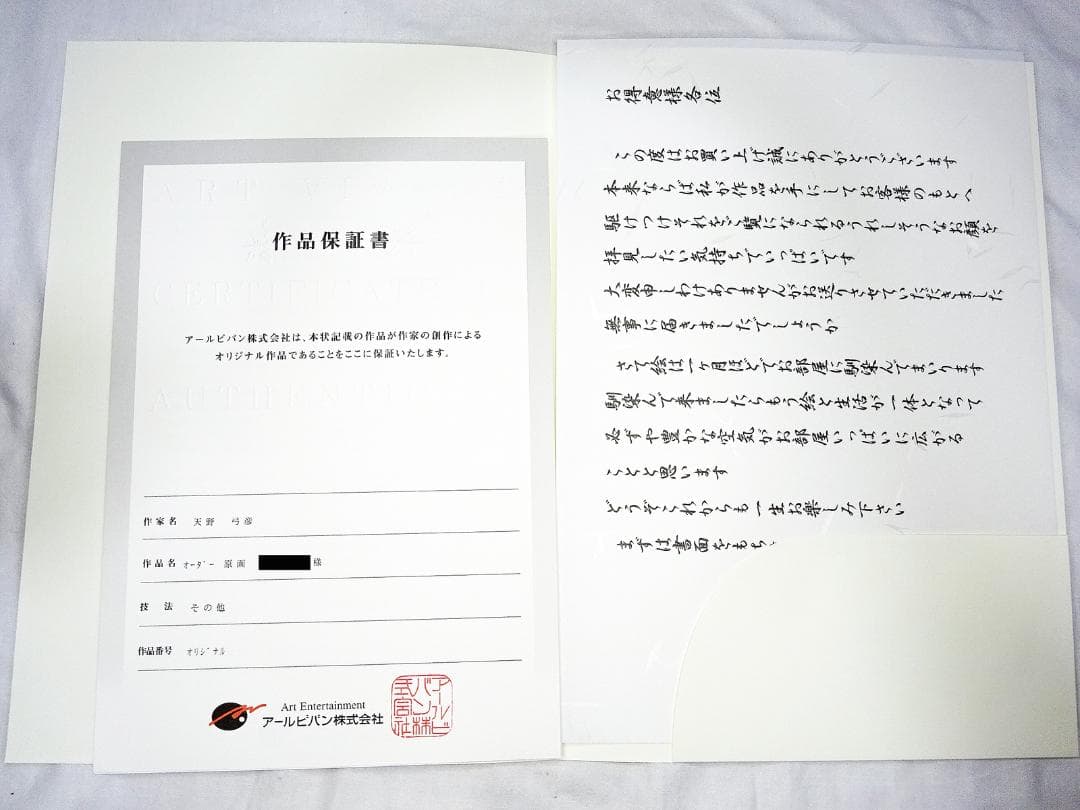 ART VIVANT
CERTIFICATE
AUTHENTIC
作品保証書
アールビバン株式会社は、本状記載の作品が作家の創作による
オリジナル作品であることをここに保証いたします。
作家名 天野 弓彦
作品名 オーダー 原画 様
技法 その他
作品番号 オリジナル
Art Entertainment
アールビバン株式会社
アールビバン株式会社
お得意様各位
この度はお買い上げ誠にありがとうございます
本来ならば私が作品を手にしてお客様のもとへ
駆けつけそれをご覧になられるうれしそうなお顔を
拝見したい気持ちでいっぱいです
大変申しわけありませんがお送りさせていただきました
無事に届きましたでしょうか
さて絵は一ヶ月ほどでお部屋に馴染んでまいります
馴染んで来ましたらもう絵と生活が一体となって
必ずや豊かな空気がお部屋いっぱいに広がる
ことと思います
どうぞこれからも一生お楽しみ下さい
まずは書面をもち